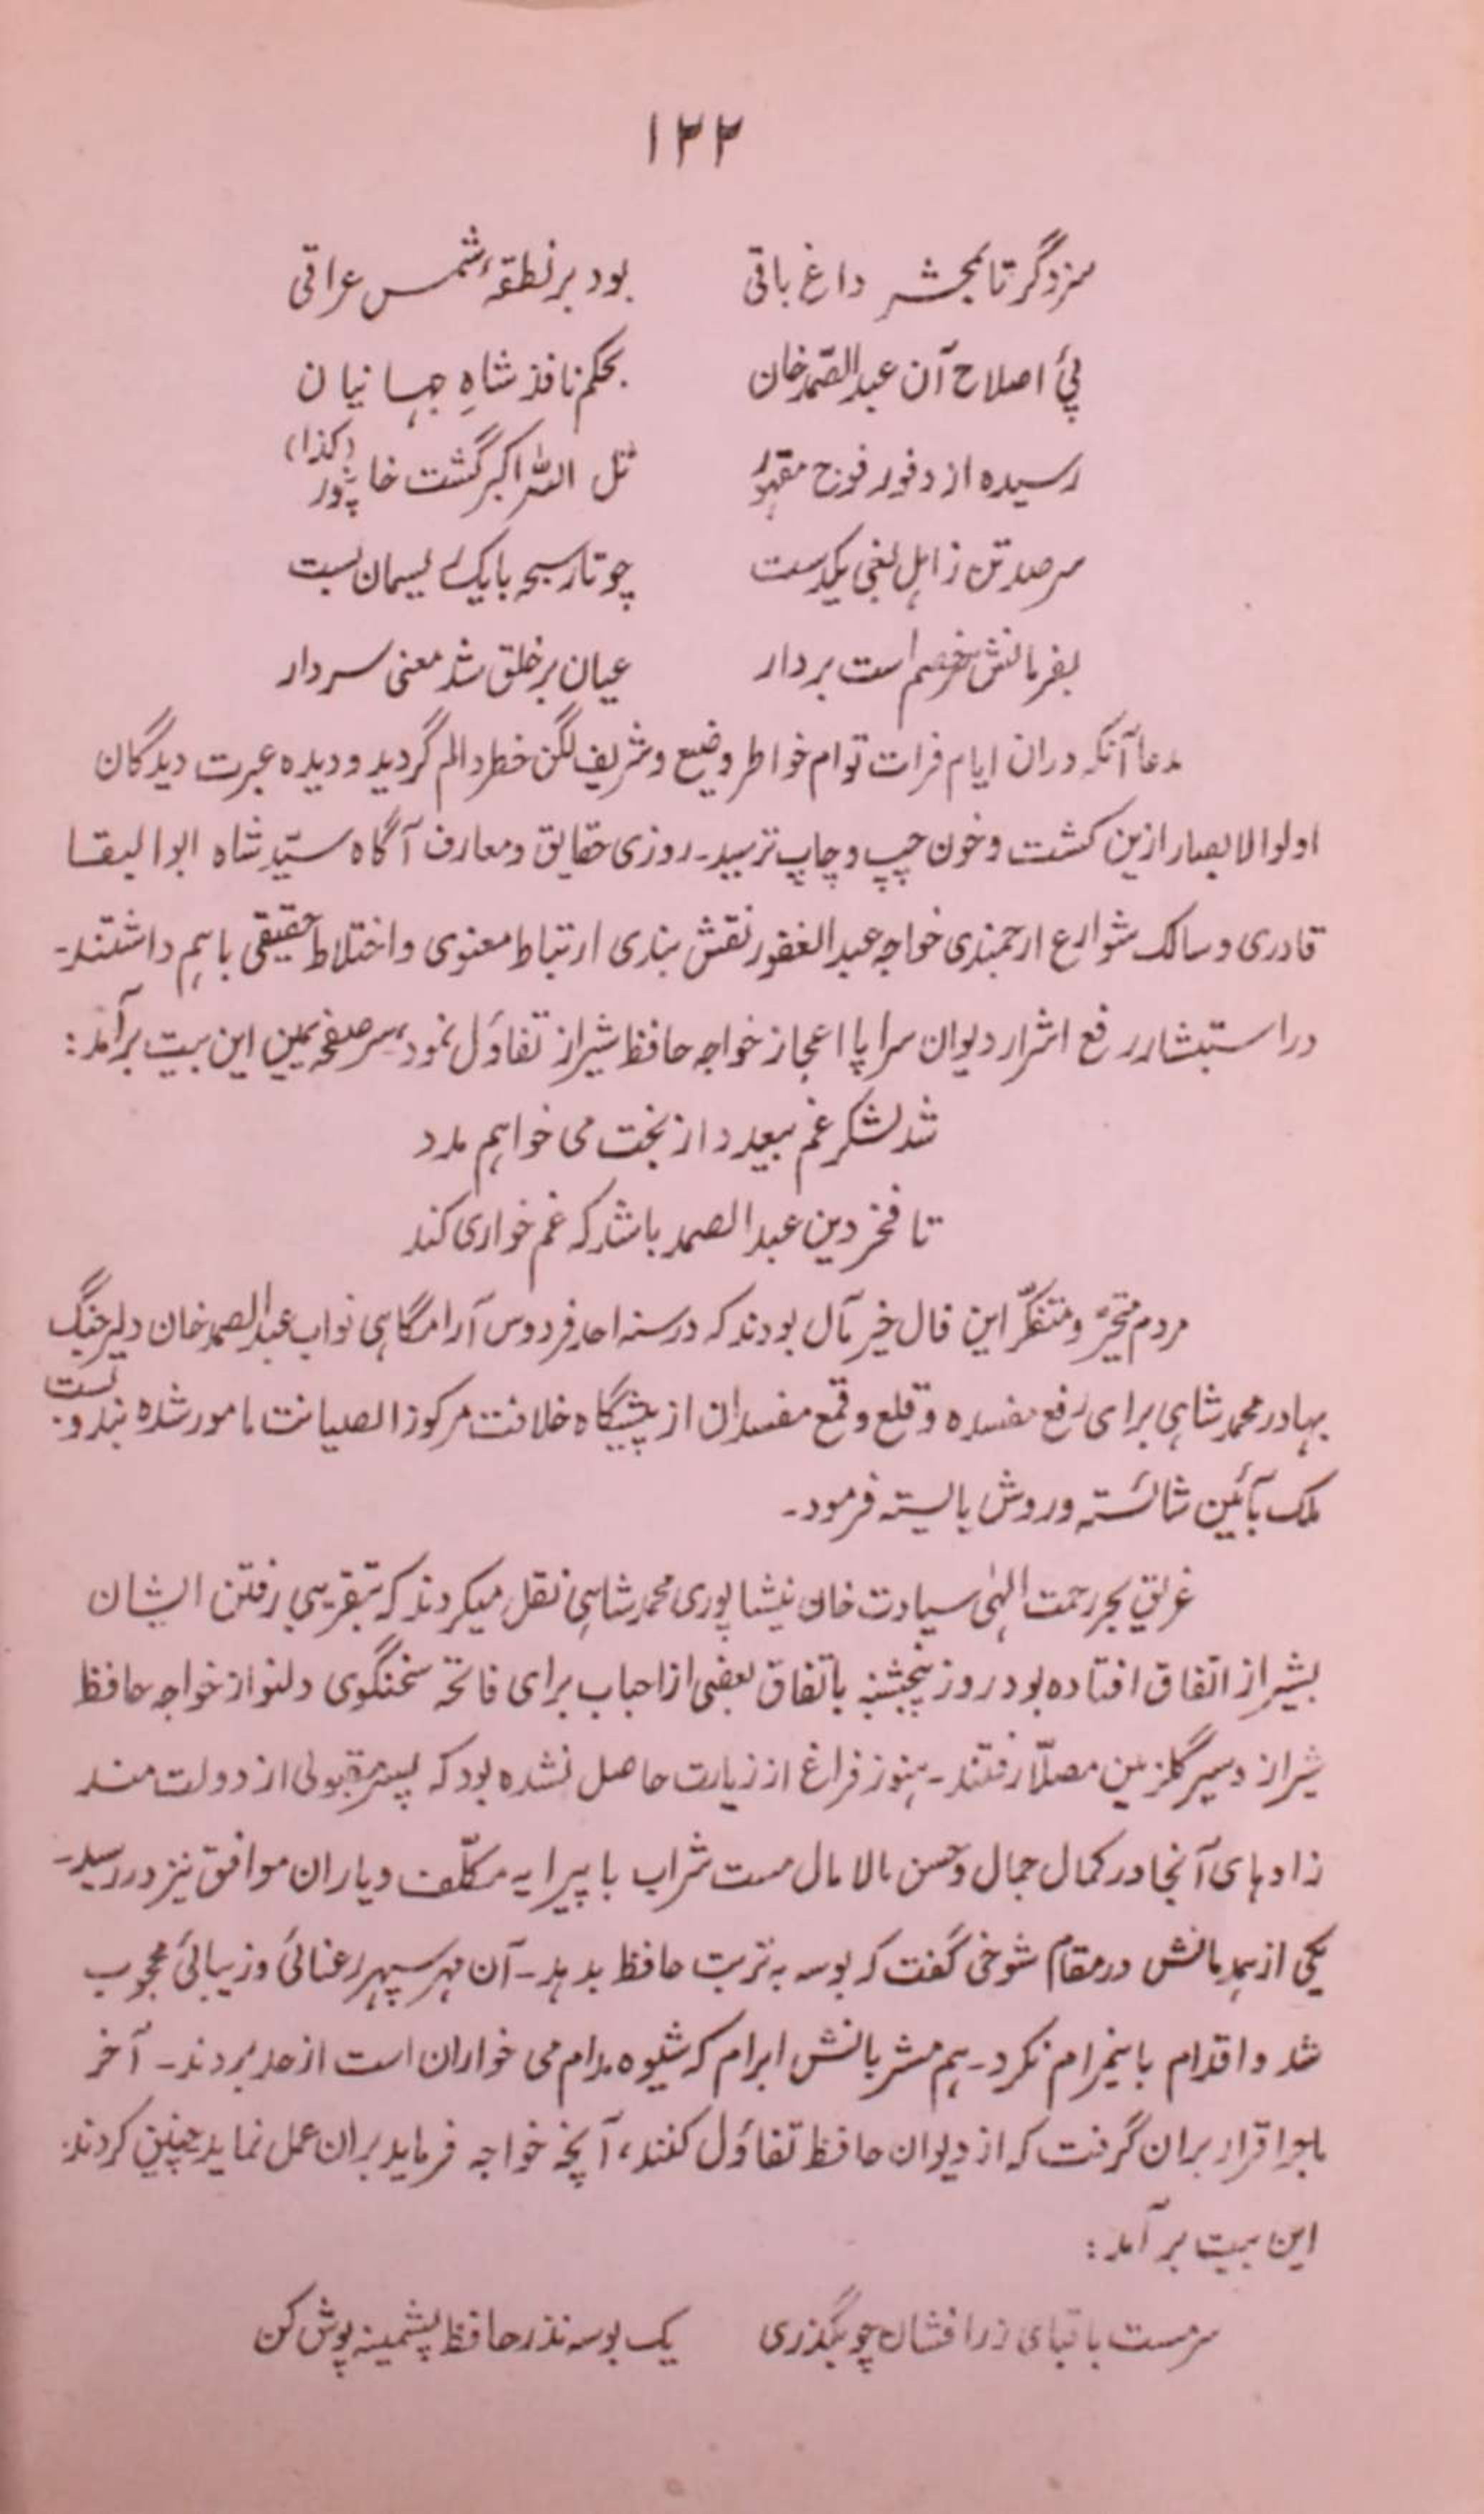 ۱۲۲
سزد گر تا بمحشر داغ باقی بود بر نطقۂ شمس عراقی
پئ اصلاح آن عبدالصّمد خان بحکم نافذ شاہِ جہانیان
رسیدہ از وفور فوج مقہور تل اللہ اکبر گشت خاپژور (کذا)
سر صد تن ز اہل بغی یکدست چو تار سبحہ با یک ریسمان بست
بفرمانش سر خصم است بردار عیان بر خلق شد معنی سردار
مدعا آنکہ دران ایام فرات توام خواطر وضیع و شریف لگن خطر و الم گردید و دیدہ عبرت دیدگان
اولوا الابصار ازین کشت و خون چپ و چاپ ترسید۔ روزی حقایق و معارف آگاہ سیّد شاہ ابوالبقا
قادری و سالک شوارع ارجمندی خواجہ عبدالغفور نقش بندی ارتباط معنوی و اختلاط حقیقی باہم داشتند۔
در استبشار رفع اشرار دیوان سراپا اعجاز خواجہ حافظ شیراز تفاوٗل نمود، سر صفحہ یمین این بیت برآمد:
شد لشکر غم بیعدد از بخت می خواہم مدد
تا فخر دین عبدالصمد باشد کہ غم خواری کند
مردم متحیّر و متفکّر این فال خیر مآل بودند کہ در سنہ احد فردوس آرامگاہی نواب عبدالصمد خان دلیر جنگ
بہادر محمد شاہی برای رفع مفسدہ و قلع و قمع مفسدان از پیشگاہ خلافت مرکوز الصیانت مامور شدہ بندوبست
ملک بآئین شائستہ و روش بایستہ فرمود۔
غریق بحر رحمت الہٰی سیادت خان نیشاپوری محمد شاہی نقل میکردند کہ بتقریبی رفتن ایشان
بشیراز اتفاق افتادہ بود روز پنجشنبہ باتفاق بعضی از احباب برای فاتحہ سخنگوی دلنواز خواجہ حافظ
شیراز و سیر گلزمین مصلّا رفتند۔ ہنوز فراغ از زیارت حاصل نشدہ بود کہ پسر مقبولی از دولت مند
زادہای آنجا در کمال جمال و حسن بالامال مست شراب با پیرایہ مکلّف و یاران موافق نیز در رسید۔
یکی از ہمدمانش در مقام شوخی گفت کہ بوسہ بہ تربت حافظ بدہد۔ آن مہر سپہر رعنائی و زیبائی محجوب
شد و اقدام باینمرام نکرد۔ ہم مشربانش ابرام کہ شیوہ مدام می خواران است از حد بردند۔ آخر
ماجرا قرار بران گرفت کہ از دیوان حافظ تفاوٗل کنند، آنچہ خواجہ فرماید بران عمل نماید چنین کردند
این بیت برآمد:
سرمست با قبای زرافشان چو بگذری یک بوسہ نذر حافظ پشمینہ پوش کن